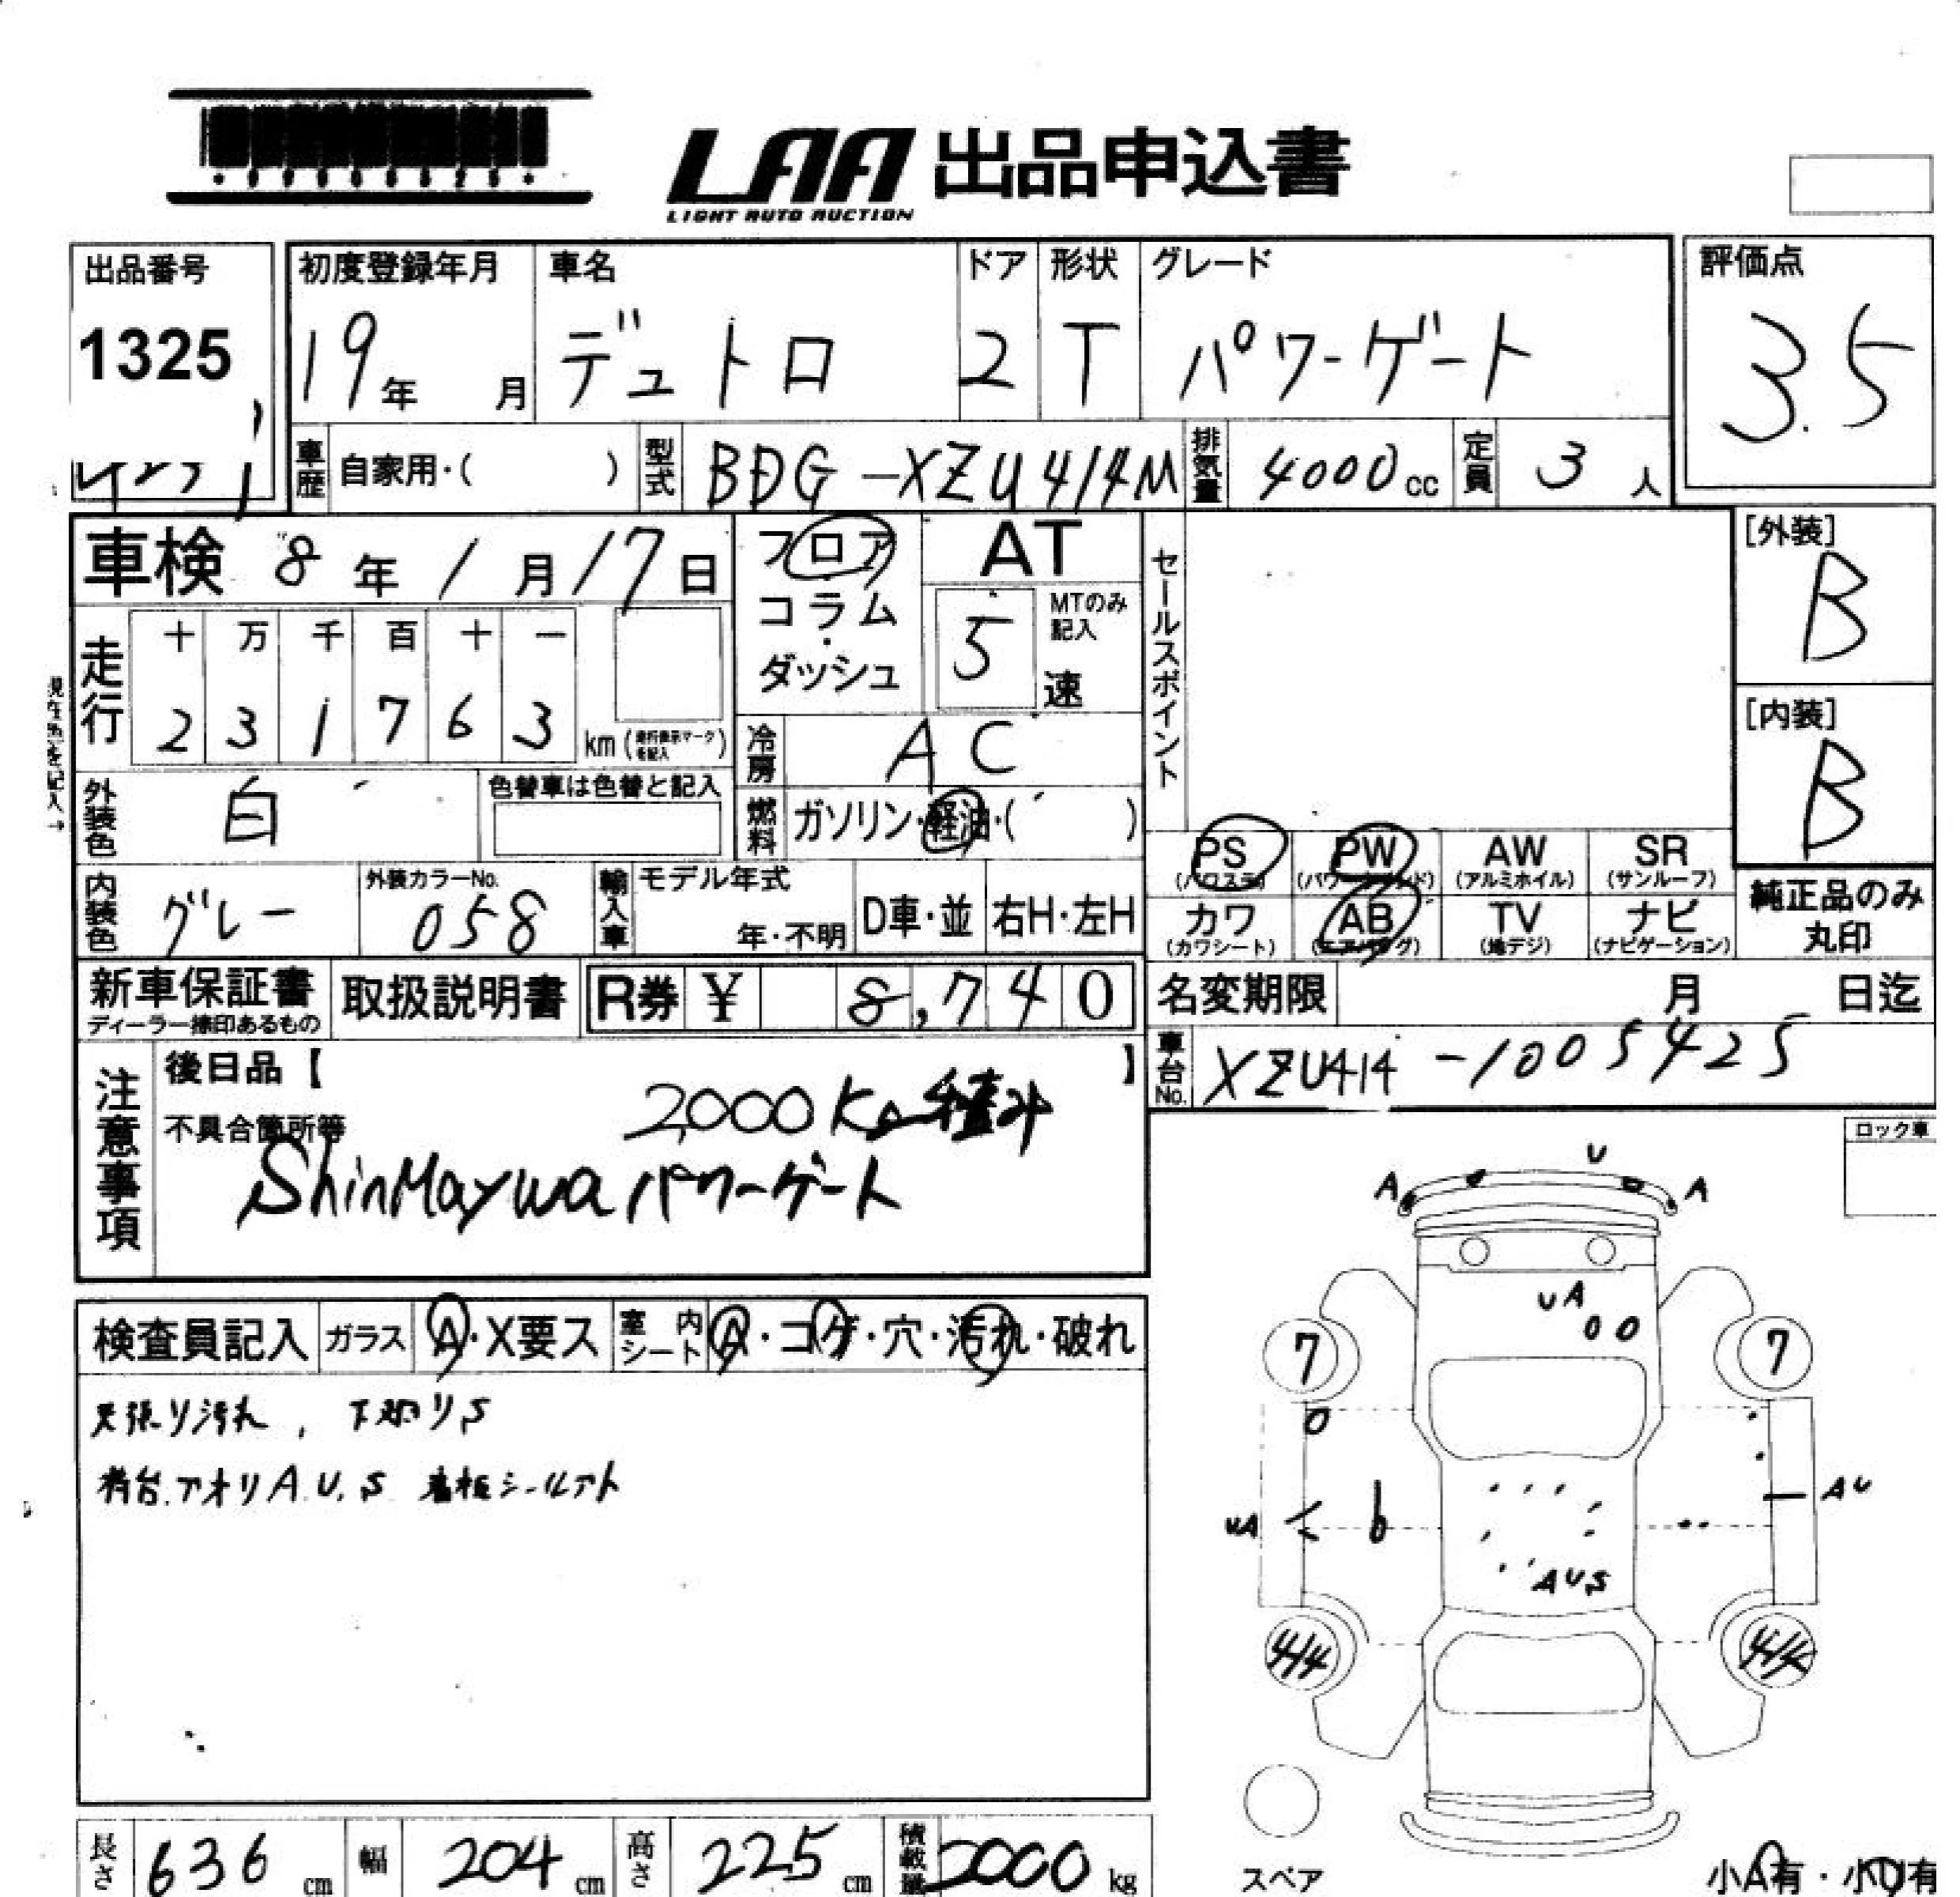 LAA 出品申込書
LIGHT AUTO AUCTION
出品番号
1325
初度登録年月
19年 月
車名
デュトロ
ドア
2
形状
T
グレード
パワーゲート
評価点
3.5
車歴 自家用・( )
型式 BDG-XZU414M
排気量 4000cc
定員 3人
車検 8年1月17日
フロア
コラム
・
ダッシュ
AT
5
MTのみ記入
速
セールスポイント
[外装]
B
[内装]
B
走行
十 万 千 百 十 一
2 3 1 7 6 3 km
冷房 AC
外装色 白
色替車は色替と記入
燃料 ガソリン・軽油・( )
内装色 グレー
外装カラーNo.
058
輸入車
モデル年式
年・不明
D車・並
右H・左H
PS
(パワステ)
PW
AW
(アルミホイル)
SR
(サンルーフ)
カワ
(カワシート)
AB
(エアバッグ)
TV
(地デジ)
ナビ
(ナビゲーション)
純正品のみ
丸印
新車保証書
ディーラー捺印あるもの
取扱説明書
R券 ¥ 8,740
名変期限 月 日迄
車台No. XZU414-1005425
注意事項
後日品【 】
不具合箇所等
2,000Kg積み
ShinMaywaパワーゲート
ロック車
検査員記入
ガラス A・X要ス
室内シート A・コゲ・穴・汚れ・破れ
天張り汚れ, 下廻りS
荷台.アオリA.U.S 看板シールアト
U
A A
UA
7 7
UA
AU
AUS
4/4 4/4
スペア
小A有・小U有
長さ 636cm
幅 204cm
高さ 225cm
積載量 2000kg